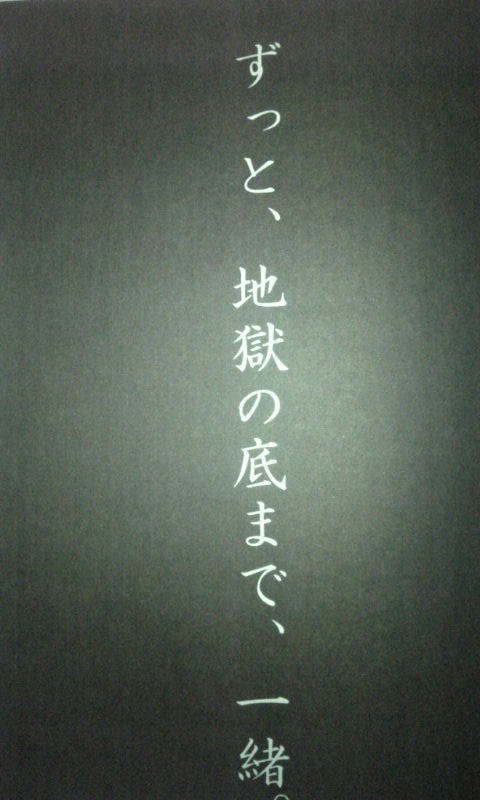 ずっと、地獄の底まで、一緒。